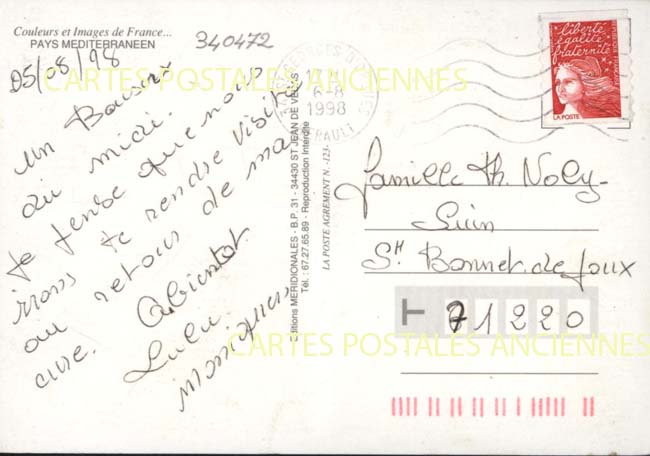 Couleurs et Images de France...
PAYS MEDITERRANEEN
340472
05/08/98
Un Bonjour
du midi.
Je pense que nous
irons te rendre visite
au retour de ma
cure. A bientot
Lulu.
Monique
Editions MERIDIONALES - B.P. 31 - 34430 ST JEAN DE VEDAS
Tél. : 67.27.65.89 - Reproduction Interdite
LA POSTE AGREMENT N. -123-
6-8
1998
HERAULT
liberté
égalité
fraternité
LA POSTE
famille Th. Noly-
Suin
St Bonnet de Joux
T 71220
CARTES POSTALES ANCIENNES
CARTES POSTALES ANCIENNES